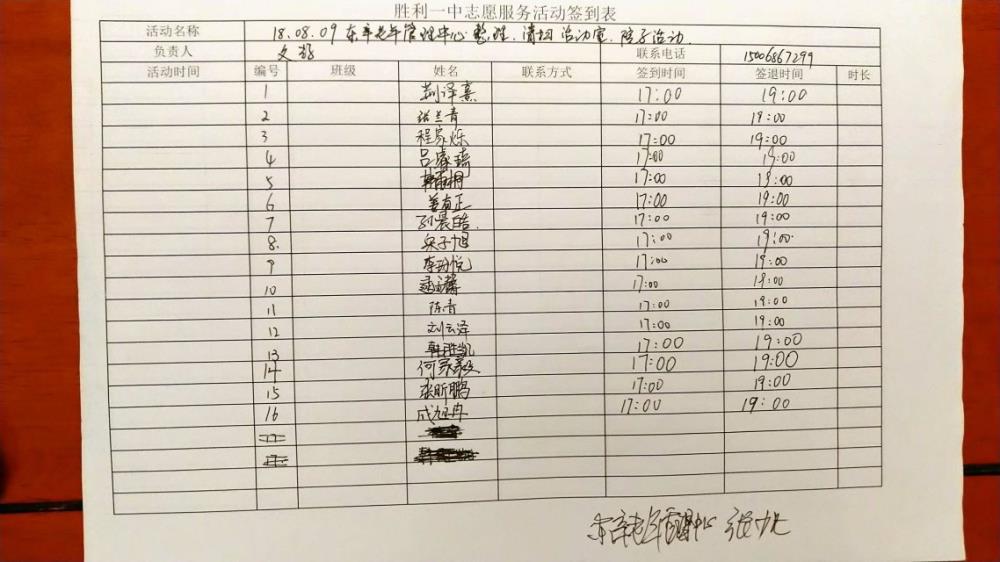 胜利一中志愿服务活动签到表
活动名称 18.08.09 东辛老年管理中心整理、清扫活动室、院子活动
负责人 联系电话 15006867299
活动时间 编号 班级 姓名 联系方式 签到时间 签退时间 时长
1 荆泽熹 17:00 19:00
2 张兰青 17:00 19:00
3 程家烁 17:00 19:00
4 吕睿琦 17:00 19:00
5 17:00 19:00
6 姜有正 17:00 19:00
7 孙晨皓 17:00 19:00
8 17:00 19:00
9 17:00 19:00
10 17:00 19:00
11 陈青 17:00 19:00
12 刘云泽 17:00 19:00
13 韩胜凯 17:00 19:00
14 何家 17:00 19:00
15 张昕鹏 17:00 19:00
16 成旭冉 17:00 19:00
东辛老年管理中心